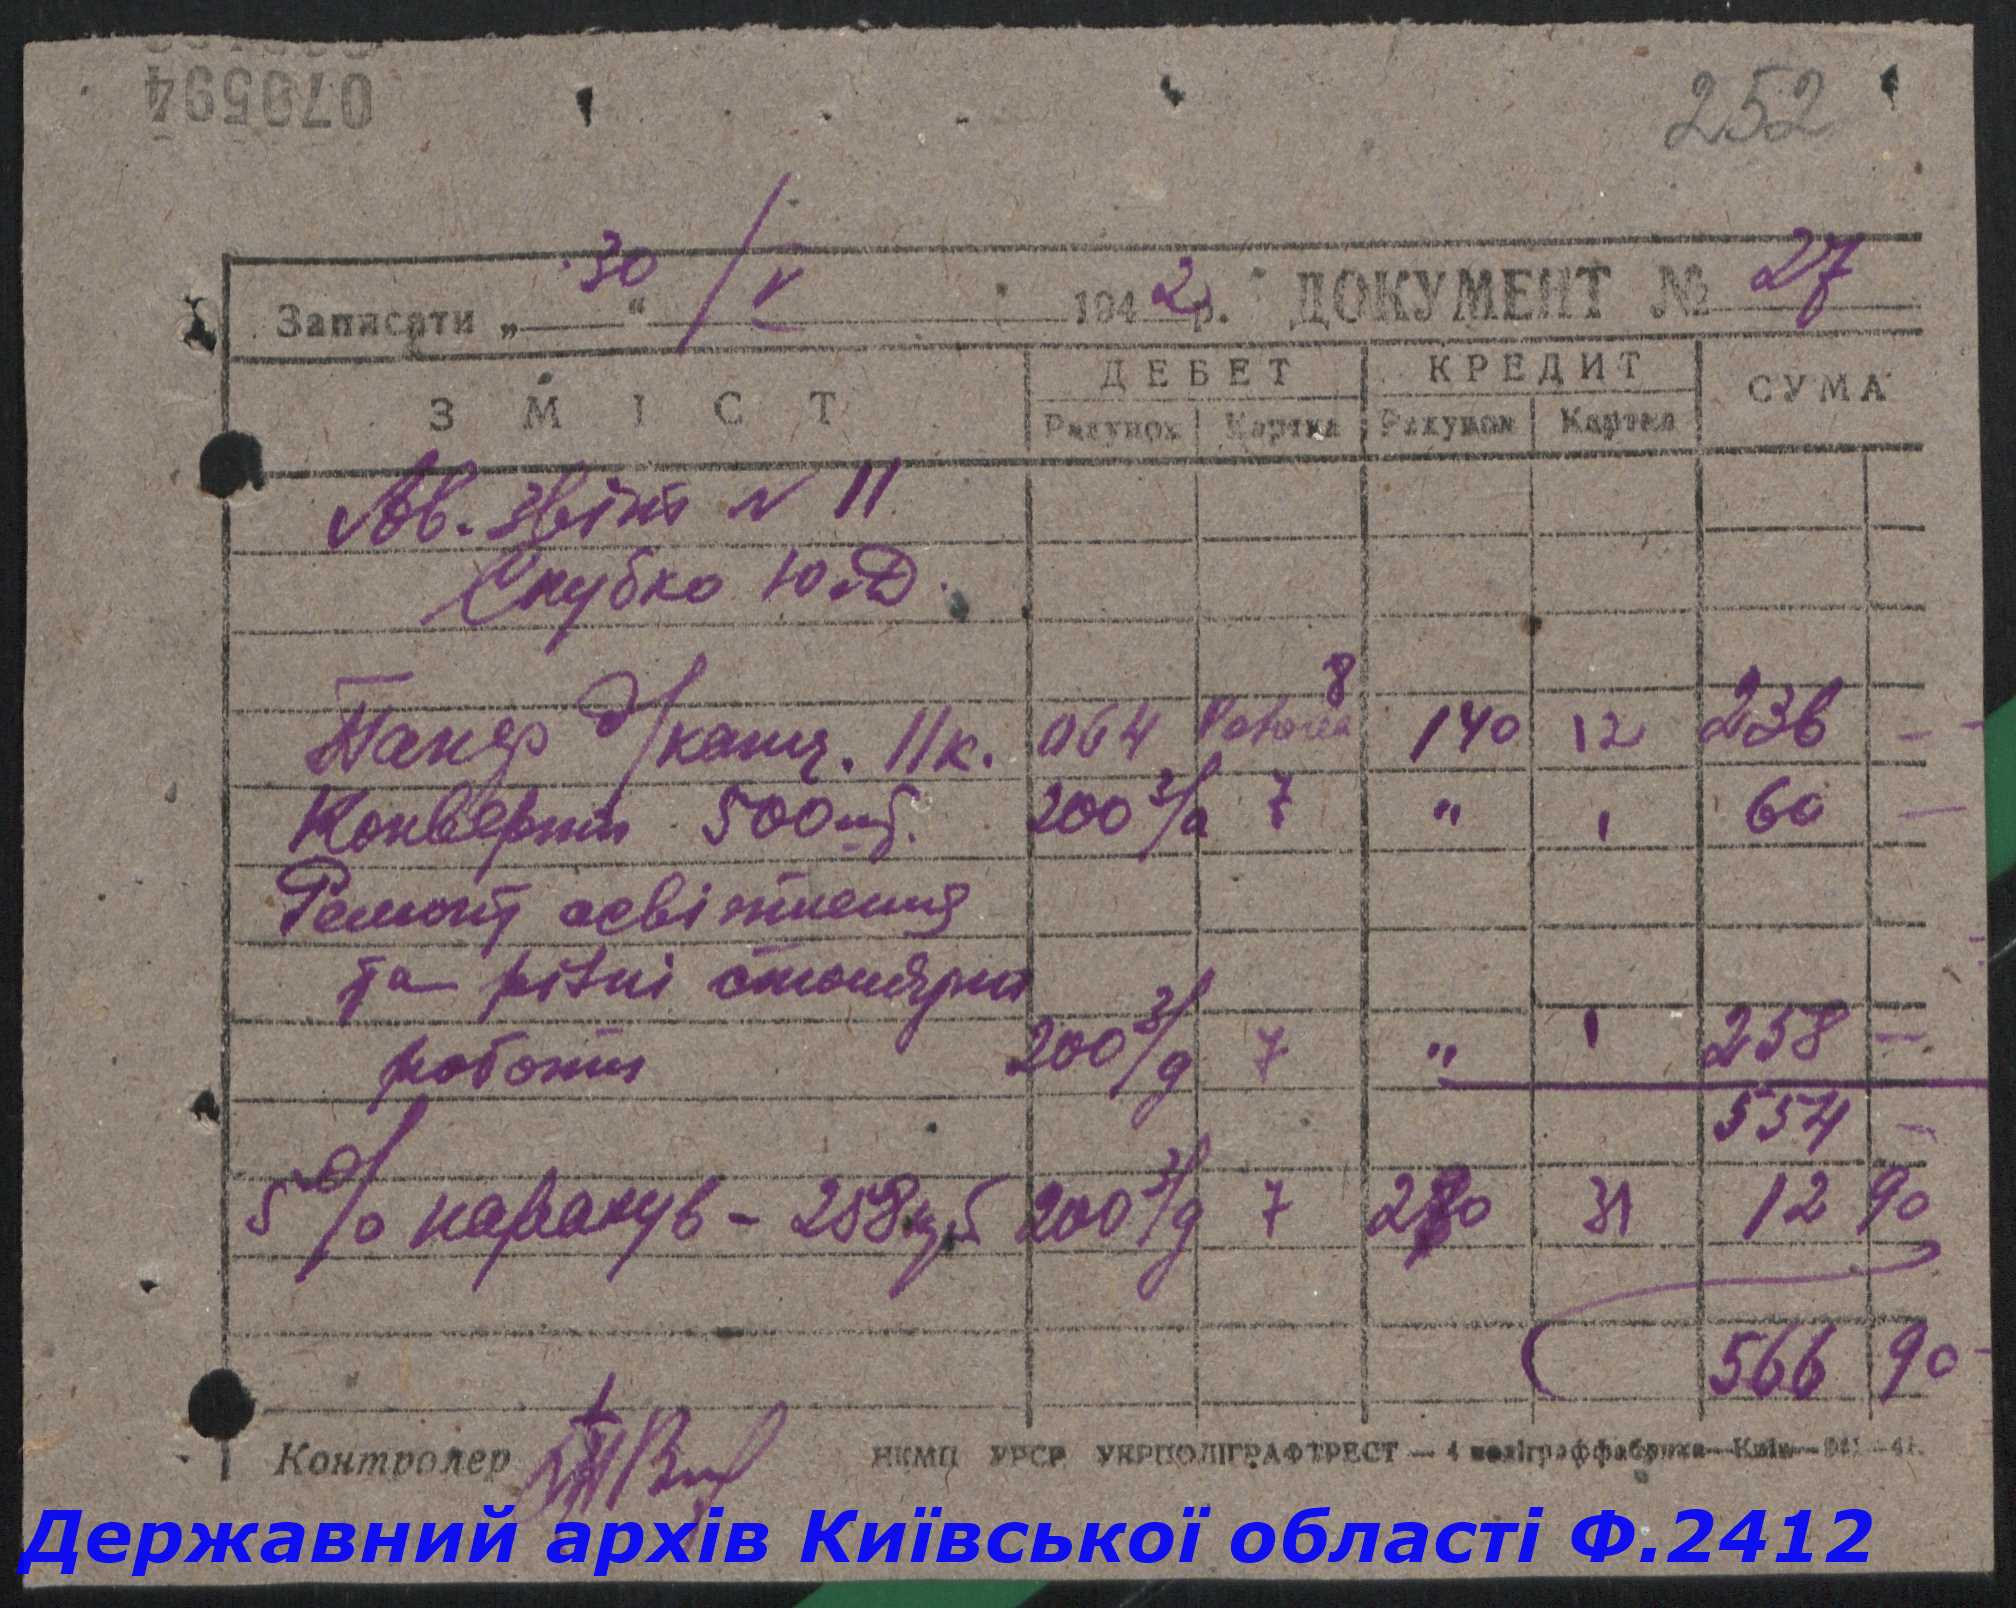 070594
252
Записати „30“ / V 1942 р. ДОКУМЕНТ № 27
ЗМІСТ ДЕБЕТ КРЕДИТ СУМА
Рахунок Картка Рахунок Картка
Ав. звіт № 11
Скубко Ю.Д.
8
Папер д/канц. 11к. 064 140 12 236 –
Конверти 500шт. 200 3/а 7 " ' 60 –
Ремонт освітлення
та різні столярні
роботи 200 3/д 7 " ' 258 –
554 –
5 % нарахув – 258 руб 200 3/д 7 280 31 12 90
566 90
Контролер НКМП УРСР УКРПОЛІГРАФТРЕСТ – 4 поліграффабрика – Київ –
Державний архів Київської області Ф.2412